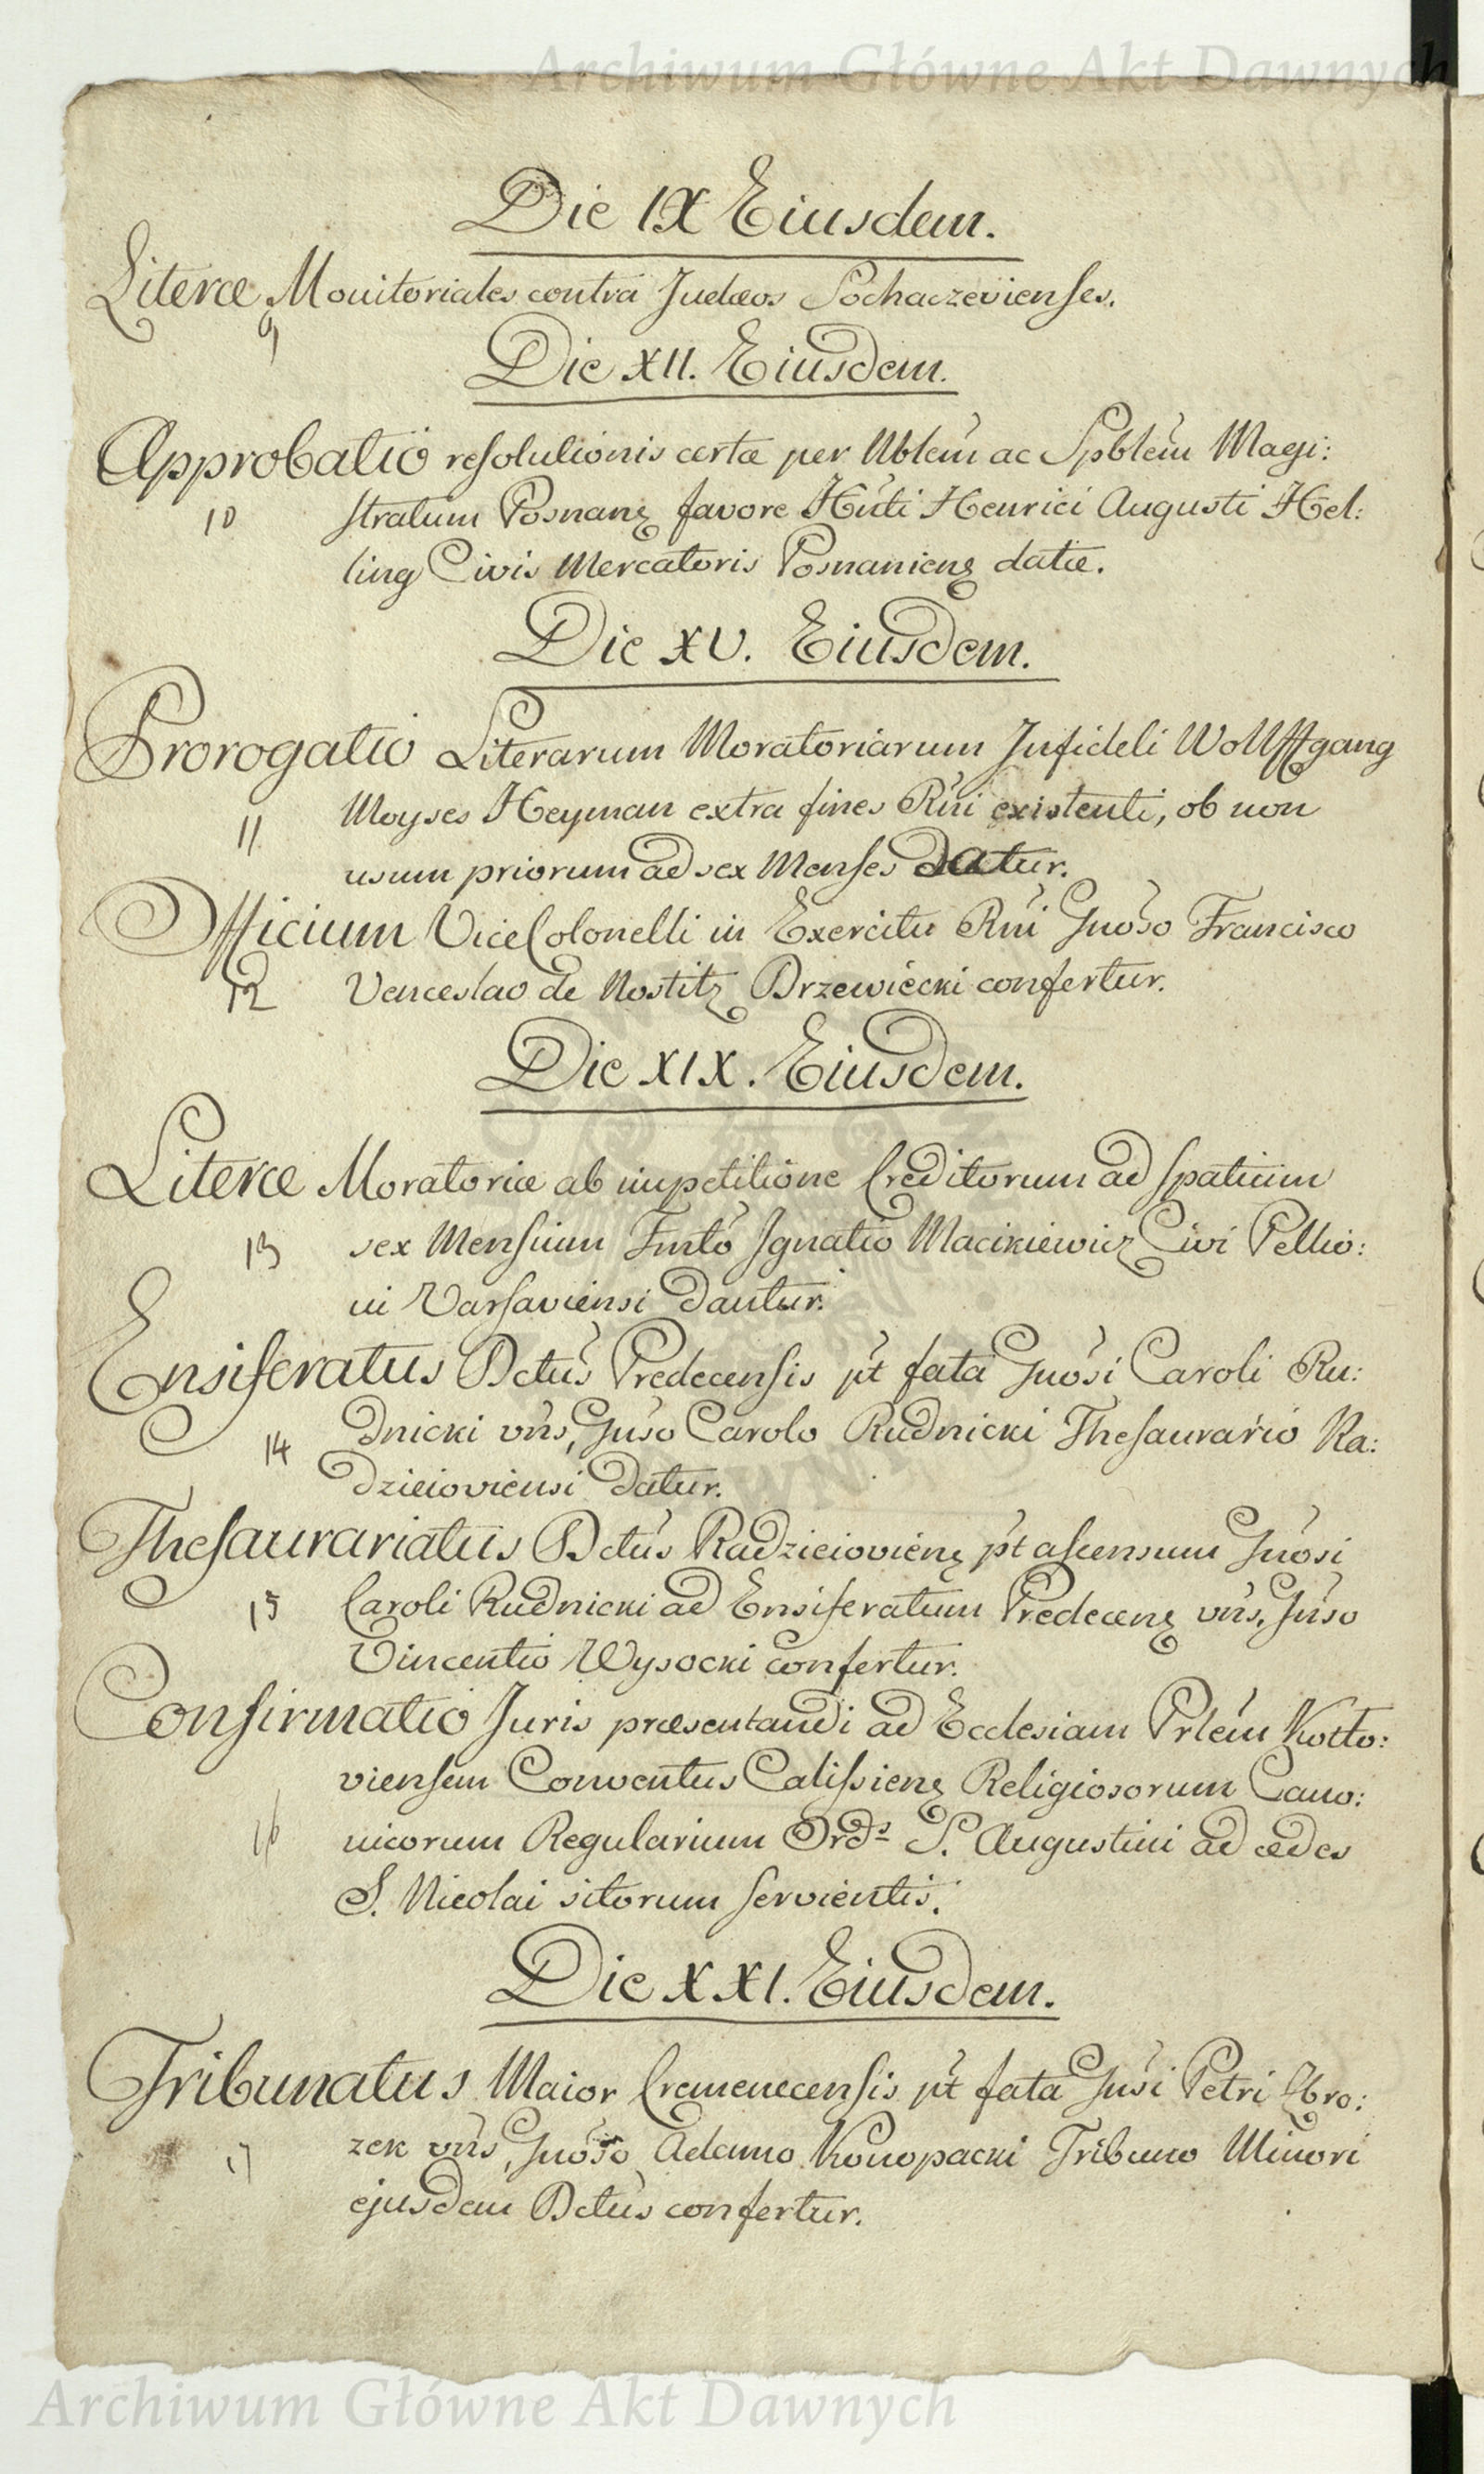 Archiwum Główne Akt Dawnych
Die IX Eiusdem.
Literæ Monitoriales contra Judæos Sochaczevienses.
9
Die XII. Eiusdem.
Approbatio resolutionis certæ per Nblem ac Spblem Magi:
10 stratum Posnanę favore Hnti Henrici Augusti Hel:
ling Civis Mercatoris Posnanienę datæ.
Die XV. Eiusdem.
Prorogatio Literarum Moratoriarum Infideli Wollffgang
11 Moyses Heyman extra fines Rni existenti, ob non
usum priorum ad sex Menses datur.
Officium ViceColonelli in Exercitu Rni Gnoso Francisco
12 Venceslao de Nostitz Drzewiecki confertur.
Die XIX. Eiusdem.
Literæ Moratoriæ ab impetitione Creditorum ad spatium
13 sex Mensium Fmto Ignatio Macikiewicz Civi Pellio:
ni Varsaviensi dantur.
Ensiferatus Dctus Predecensis pt fata Gnosi Caroli Ru:
14 dnicki vns, Gnso Carolo Rudnicki Thesaurario Ra:
dzieioviensi datur.
Thesaurariatus Dctus Radzieiovienę pt ascensum Gnosi
15 Caroli Rudnicki ad Ensiferatum Predecenę vns, Gnso
Vincentio Wysocki confertur.
Confirmatio Juris præsentandi ad Ecclesiam Prlem Kotto:
viensem Conventus Calissienę Religiosorum Cano:
16 nicorum Regularium Ords S. Augustini ad ædes
S. Nicolai sitorum servientis.
Die XXI. Eiusdem.
Tribunatus Maior Cremenecensis pt fata Gnsi Petri Obro:
17 zek vns, Gnoso Adamo Konopacki Tribuno Minori
ejusdem Dctus confertur.
Archiwum Główne Akt Dawnych